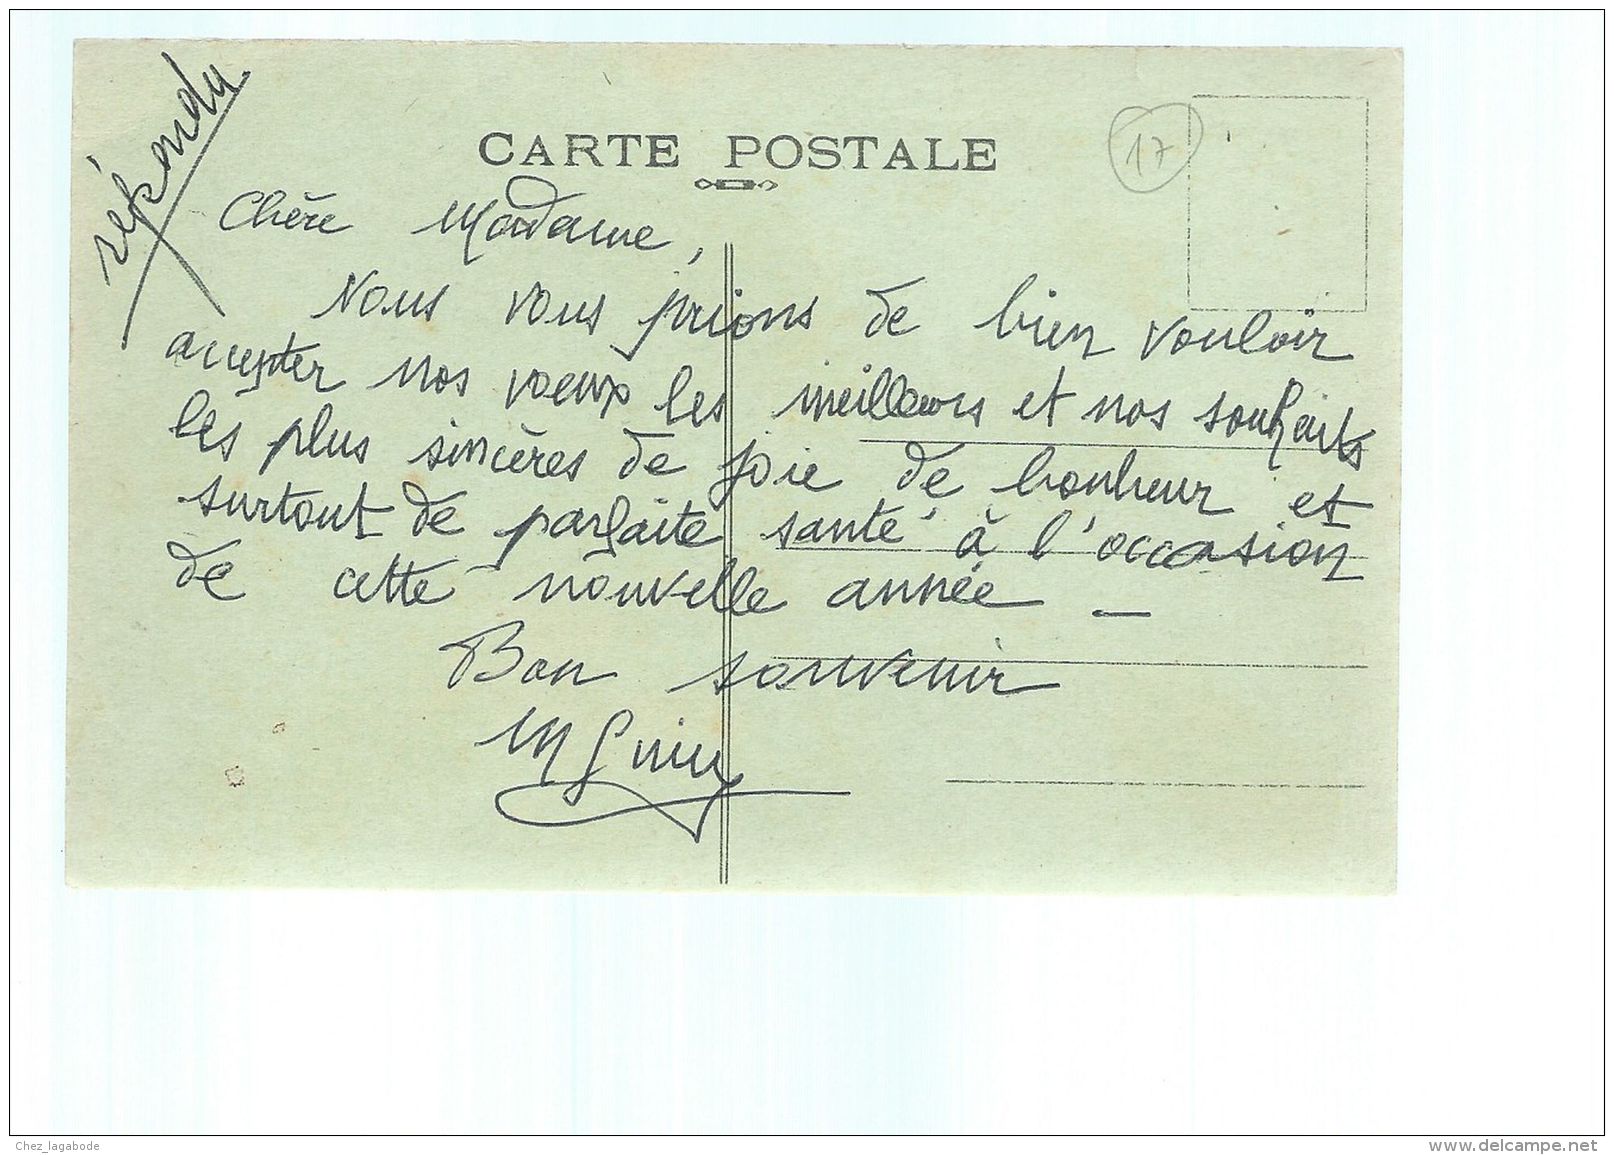 répondu
CARTE POSTALE
17
Chère Madame,
Nous vous prions de bien vouloir
accepter nos voeux les meilleurs et nos souhaits
les plus sincères de joie de bonheur et
surtout de parfaite santé à l'occasion
de cette nouvelle année –
Bon souvenir
M
Chez_lagabode
www.delcampe.net